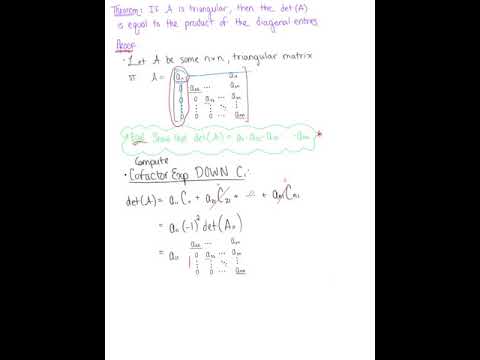 Theorem: If A is triangular, then the det(A)
is equal to the product of the diagonal entries
Proof
• Let A be some n×n, triangular matrix
A = a₁₁ a₁ₙ
0 a₂₂ ... a₂ₙ
0 0 a₃₃ ... a₃ₙ
⋮ ⋮ ⋮ ⋱ ⋮
0 0 0 ... aₙₙ
Goal: Show that det(A) = a₁₁·a₂₂·a₃₃ ··· aₙₙ *
Compute
• Cofactor Exp DOWN C₁
det(A) = a₁₁C₁₁ + a₂₁C₂₁ + ... + aₙ₁Cₙ₁
= a₁₁(-1)² det(A₁₁)
= a₁₁ a₂₂ ... a₂ₙ
0 a₃₃ ... a₃ₙ
⋮ ⋮ ⋱ ⋮
0 0 ... aₙₙ